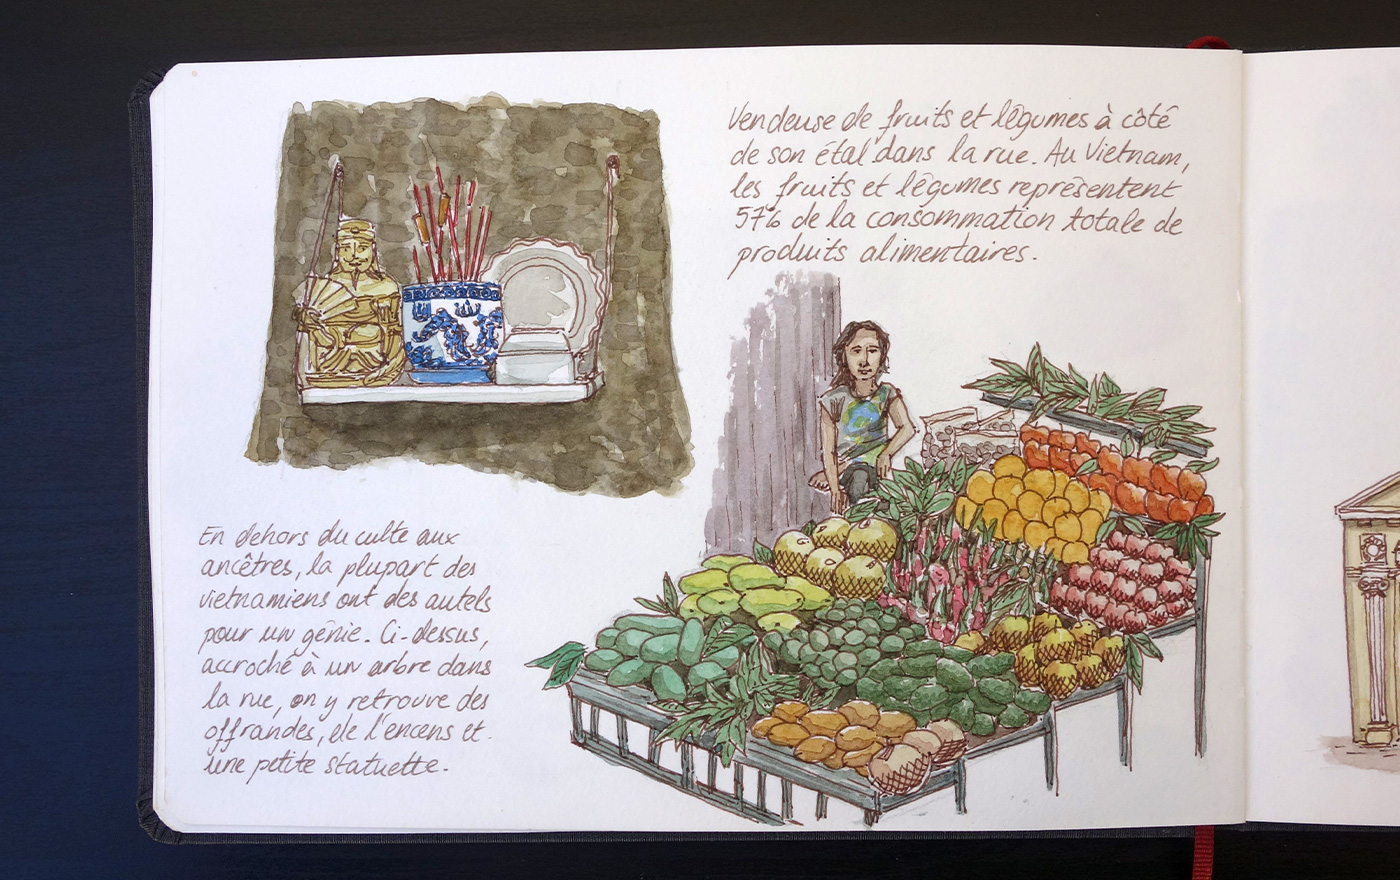 Vendeuse de fruits et légumes à côté
de son étal dans la rue. Au Vietnam,
les fruits et légumes représentent
57% de la consommation totale de
produits alimentaires.
En dehors du culte aux
ancêtres, la plupart des
vietnamiens ont des autels
pour un génie. Ci-dessus,
accroché à un arbre dans
la rue, on y retrouve des
offrandes, de l'encens et
une petite statuette.